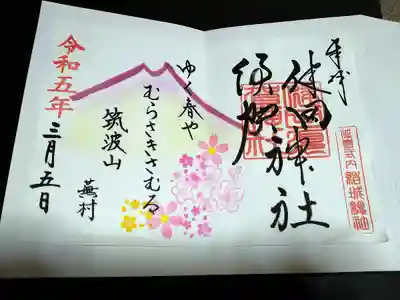 奉拝
健田神社
須賀神社
延喜式内
ゆく春や
むらさきさむる
筑波山
蕪村
令和五年
三月五日